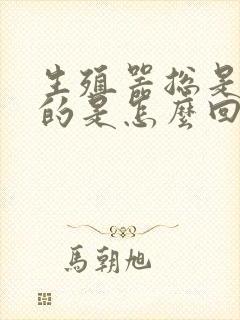 生殖器总是
的是怎麼回
馬朝旭